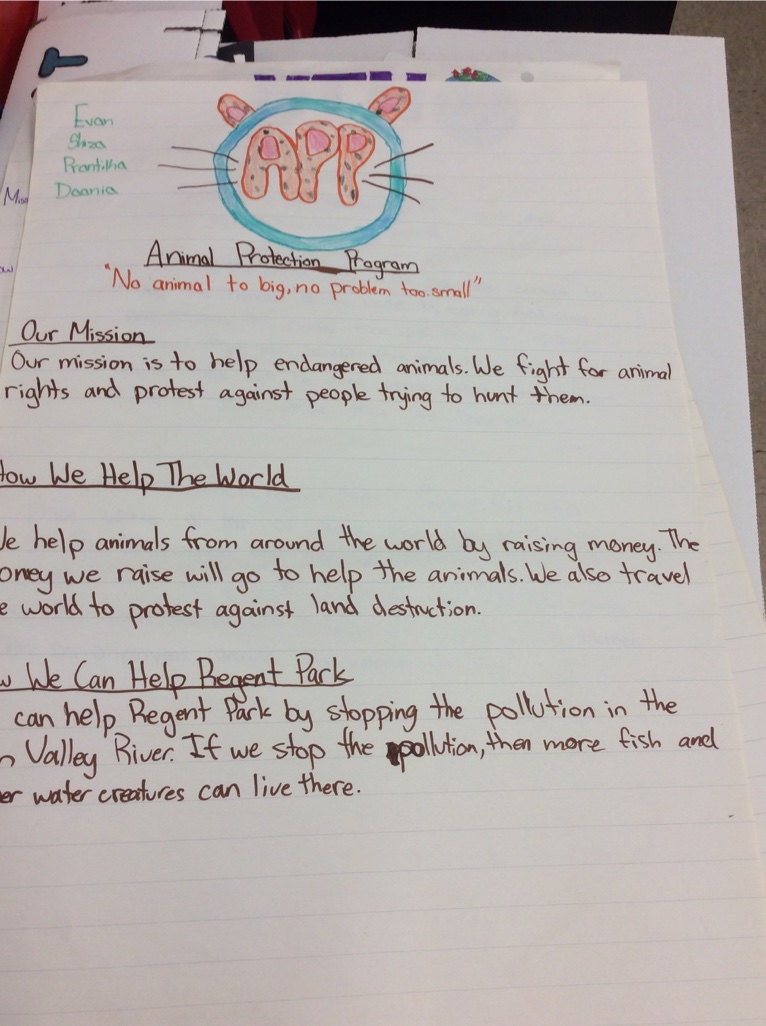 Evan
Shiza
Prantibha
Daania
APP
Animal Protection Program
"No animal to big, no problem too small"
Our Mission
Our mission is to help endangered animals. We fight for animal
rights and protest against people trying to hunt them.
How We Help The World
We help animals from around the world by raising money. The
oney we raise will go to help the animals. We also travel
e world to protest against land destruction.
w We Can Help Regent Park
can help Regent Park by stopping the pollution in the
n Valley River. If we stop the pollution, then more fish and
er water creatures can live there.